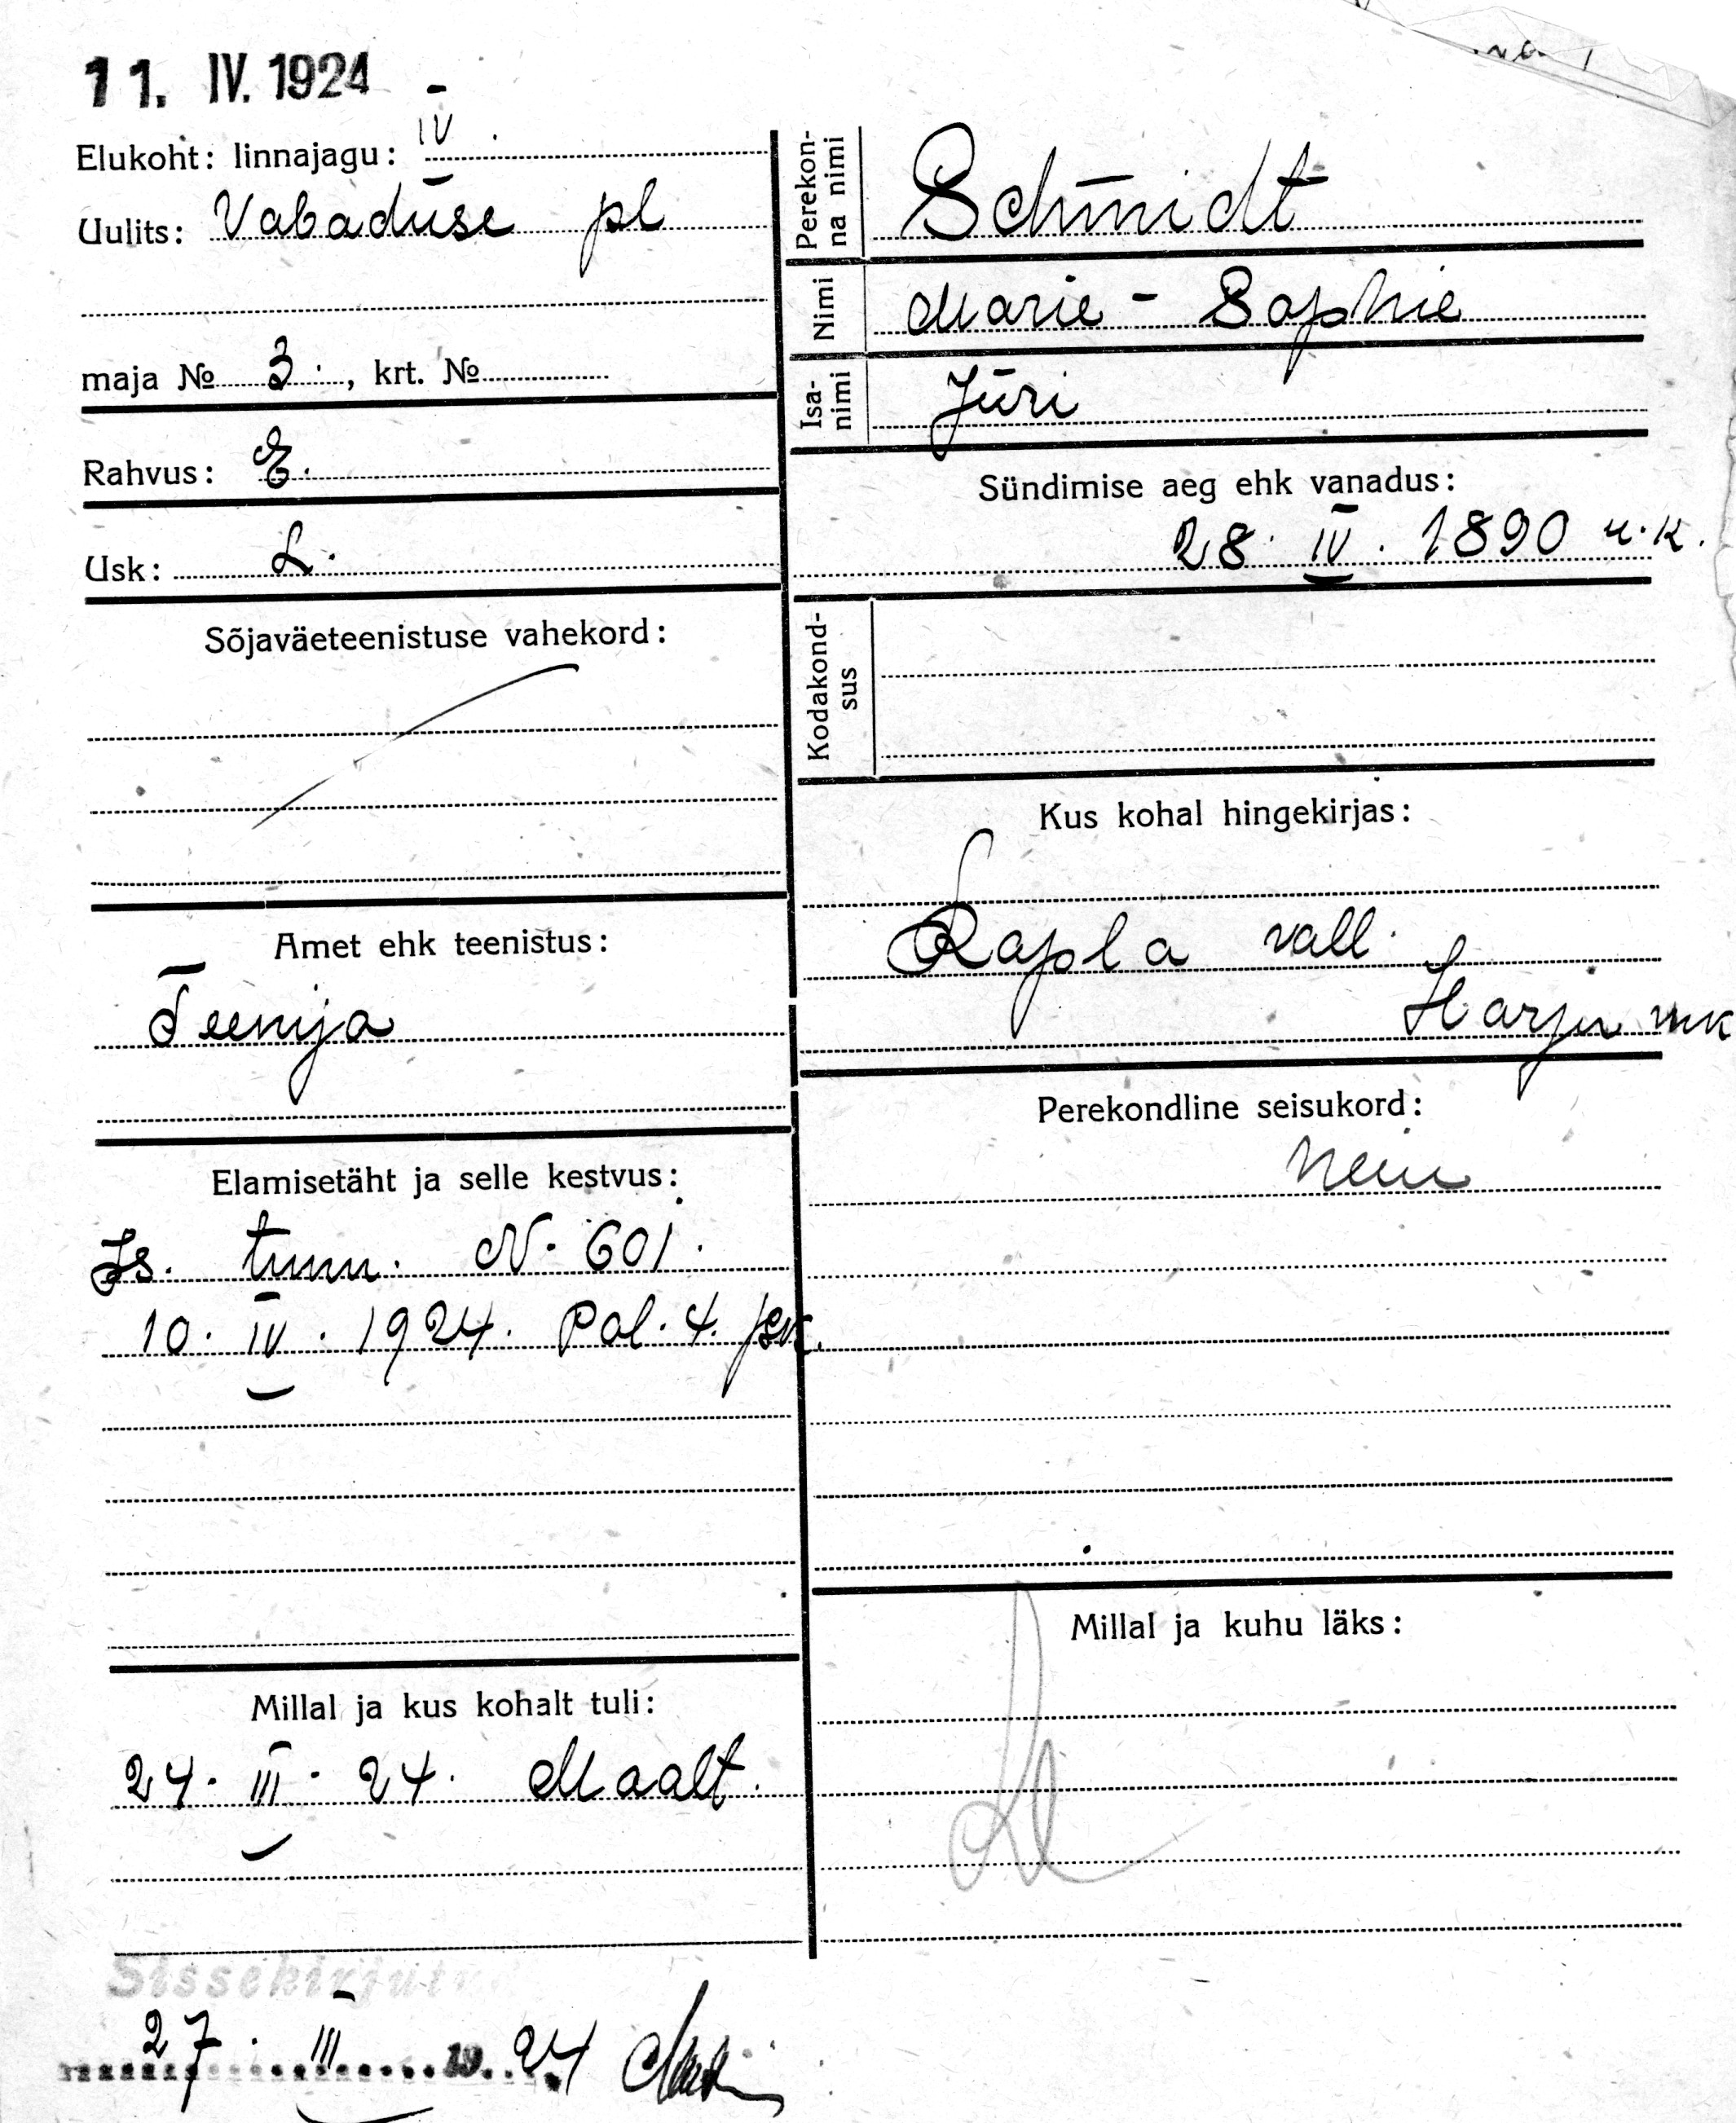 11. IV. 1924
Elukoht: linnajagu: IV
Uulits: Vabaduse pl
maja № 3., krt. №
Rahvus: E.
Usk: L.
Sõjaväeteenistuse vahekord:
Amet ehk teenistus:
Teenija
Elamisetäht ja selle kestvus:
Is. tunn. N. 601.
10. IV. 1924. Pol. 4. jsk.
Millal ja kus kohalt tuli:
24. III. 24. Maalt.
Sissekirjut
27. III 19. 24
Perekon-
na nimi
Schmidt
Nimi
Marie - Sophie
Isa-
nimi
Jüri
Sündimise aeg ehk vanadus:
28. IV. 1890 u.k.
Kodakond-
sus
Kus kohal hingekirjas:
Rapla vall.
Harju mk
Perekondline seisukord:
neiu
Millal ja kuhu läks: